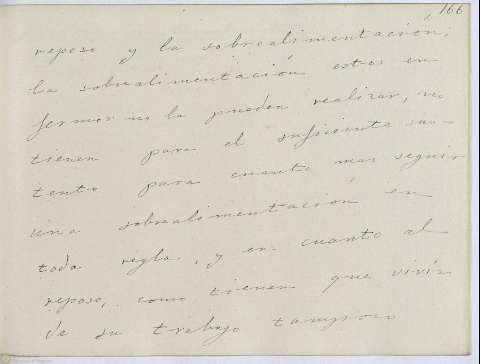 166
reposo y la sobrealimentación;
la sobrealimentación estos en
fermos no la pueden realizar, no
tienen para el suficiente sus-
tento para cuanto mas seguir
una sobrealimentación en
toda regla, y en cuanto al
reposo, como tienen que vivir
de su trabajo tampoco